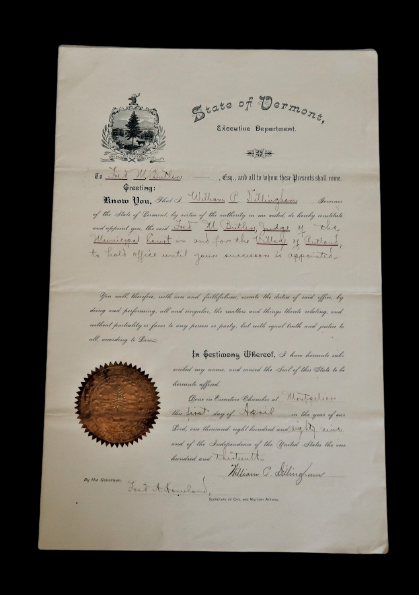 State of Vermont,
Executive Department.
To Fred M. Butler, Esq., and all to whom these Presents shall come,
Greeting:
Know You, That I, William P. Dillingham Governor
of the State of Vermont, by virtue of the authority in me vested do hereby constitute
and appoint you, the said Fred M. Butler, Judge of the
Municipal Court in and for the Village of Rutland,
to hold office until your successor is appointed.
You will, therefore, with care and faithfulness, execute the duties of said office, by
doing and performing, all and singular, the matters and things thereto relating, and
without partiality or favor to any person or party, but with equal truth and justice to
all, according to Law.
In Testimony Whereof, I have hereunto sub-
scribed my name, and caused the Seal of this State to be
hereunto affixed.
Done in Executive Chamber at Montpelier
this first day of April in the year of our
Lord, one thousand eight hundred and eighty nine
and of the Independence of the United States the one
hundred and thirteenth.
William P. Dillingham
By the Governor,
Fred A. Howland,
Secretary of Civil and Military Affairs.